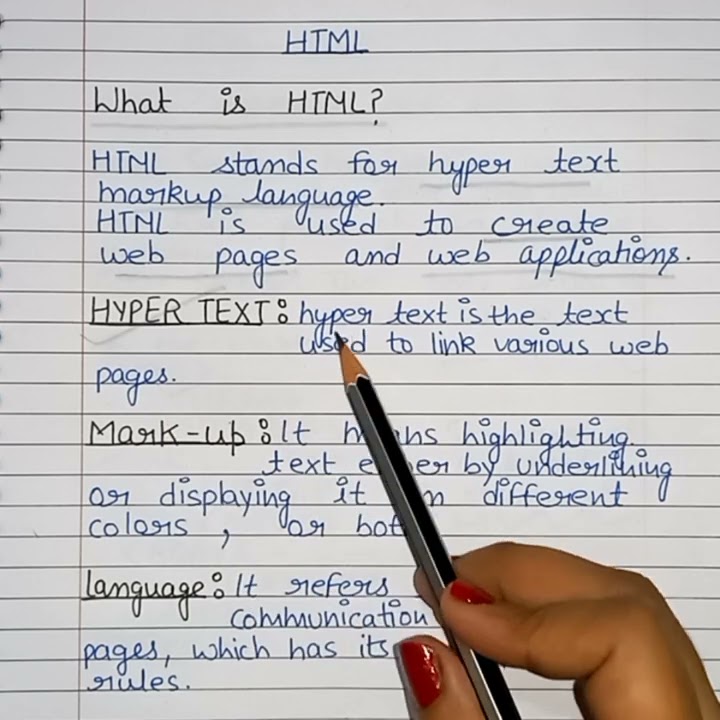 HTML
What is HTML?
HTML stands for hyper text
markup language.
HTML is used to create
web pages and web applications.
HYPER TEXT: hyper text is the text
used to link various web
pages.
Mark-up: It means highlighting
text either by underlining
or displaying it in different
colors, or both
language: It refers
communication
pages, which has its
rules.